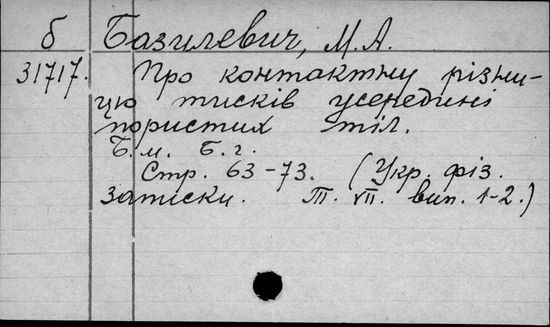 б Базилевич, М. А.
31717. Про контактну різни-
цю тисків усередині
пористих тіл.
Б. м. Б. г.
Стр. 63-73. (Укр. фіз.
записки. Т. VII. вип. 1-2.)